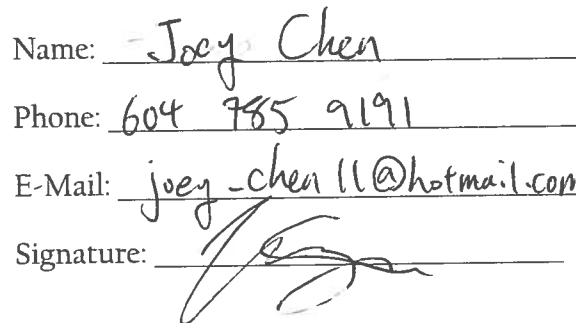 Name: Joey Chen
Phone: 604 785 9191
E-Mail: joey_chen11@hotmail.com
Signature: